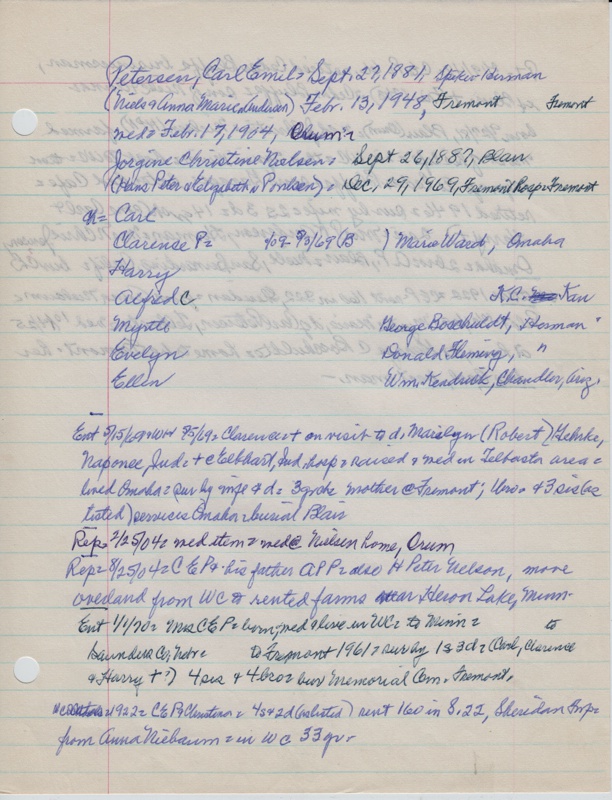 Petersen, Carl Emil = Sept. 27, 1881, Herman
(Niels & Anna Marie Andersen) Feb. 13, 1948, Fremont Fremont
med = Feb. 17, 1904, Orum =
Jorgine Christine Nielsen = Sept 26, 1887, Blair
(Hans Peter & Elizabeth ) = Dec. 29, 1969, Fremont Hosp = Fremont
= Carl
Clarence P = /09 - 8/3/69 (B ) Marie Ward, Omaha
Harry
Alfred C. K.C. Kan
Myrtle George Boschuldt, Herman
Evelyn Donald Fleming, "
Ellen Wm. Kendrick, Chandler, Ariz.
Ent 8/15/69 = Clarence + on visit to d. Marilyn (Robert) Gehrke,
Naponee, Ind. = + @ Elkhart, Ind. hosp = raised & med in Telbasta area =
lived Omaha = sur by wife & d = 3 grdc mother @ Fremont; bro + 3 sis (as
listed) services Omaha = burial Blair
Rep = 2/25/04 = med item = med @ Nielsen home, Orum
Rep = 8/25/04 = C E P & his father A P P = also H Peter Nelson, move
overland from WC to rented farms near Heron Lake, Minn.
Ent 1/1/70 = Mrs C E P = born, med & live in WC = to Minn = to
Saunders Co, Nebr = to Fremont 1961 = sur by 1 s 3 d = (Carl, Clarence
& Harry + ?) 4 sis & 4 bro = bur Memorial Cem. Fremont.
1922 = C E P & Christina = 4 s & 2 d (as listed) rent 160 in 8.22, Sheridan Twp =
from Anna Niebaum = in WC 33 yr.